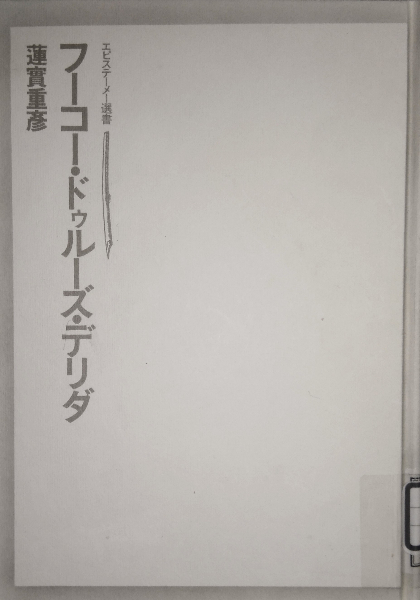 エピステーメー選書
フーコー・ドゥルーズ・デリダ
蓮實重彦